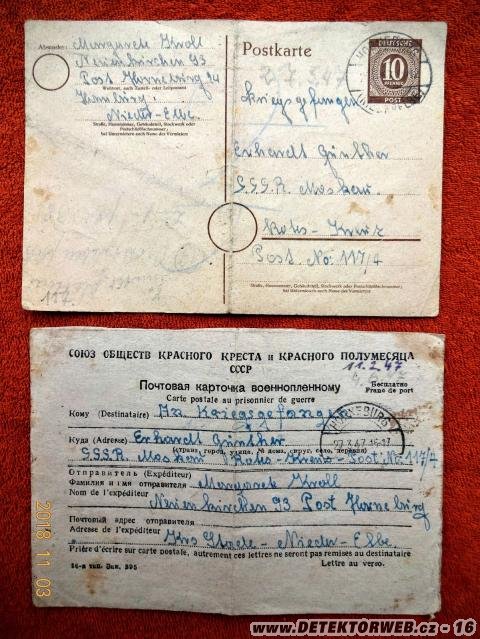 Absender: Margarete Kroll
Neuenkirchen 93
Post Horneburg 24
Wohnort, auch Zustell- oder Leitpostamt
Hamburg
Nieder-Elbe
Straße, Hausnummer, Gebäudeteil, Stockwerk oder Postschließfachnummer;
bei Untermietern auch Name des Vermieters
Postkarte
DEUTSCHE
10
PFENNIG
POST
Kriegsgefangen
Erhardt Günther
S.S.S.R. Moskau.
Rotes-Kreuz
Post No: 117/4
Straße, Hausnummer, Gebäudeteil, Stockwerk oder Postschließfachnummer;
bei Untermietern auch Name des Vermieters
117
СОЮЗ ОБЩЕСТВ КРАСНОГО КРЕСТА и КРАСНОГО ПОЛУМЕСЯЦА
СССР
11.2.47
Почтовая карточка военнопленному
Бесплатно
Carte postale au prisonnier de guerre
Franc de port
Кому (Destinataire) An Kriegsgefangen
HORNEBURG
Куда (Adresse) Erhardt Günther
(страна, город, улица, № дома, округ, село, деревня)
S.S.S.R. Moskau Rotes-Kreuz-Post No: 117/4
Отправитель (Expéditeur)
Фамилия и имя отправителя Margarete Kroll
Nom de l'expéditeur
Neuenkirchen 93 Post Horneburg
Почтовый адрес отправителя
Adresse de l'expéditeur
Krs Stade - Nieder-Elbe
Prière d'écrire sur carte postale, autrement ces lettres ne seront pas remises au destinataire
16-я тип. Зак. 395
Lettre au verso.
2018 11 03
www.DETEKTORWEB.cz - 16